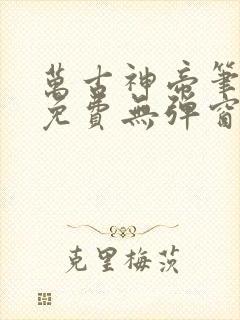 萬古神帝筆
免費無彈窗
克里梅茨